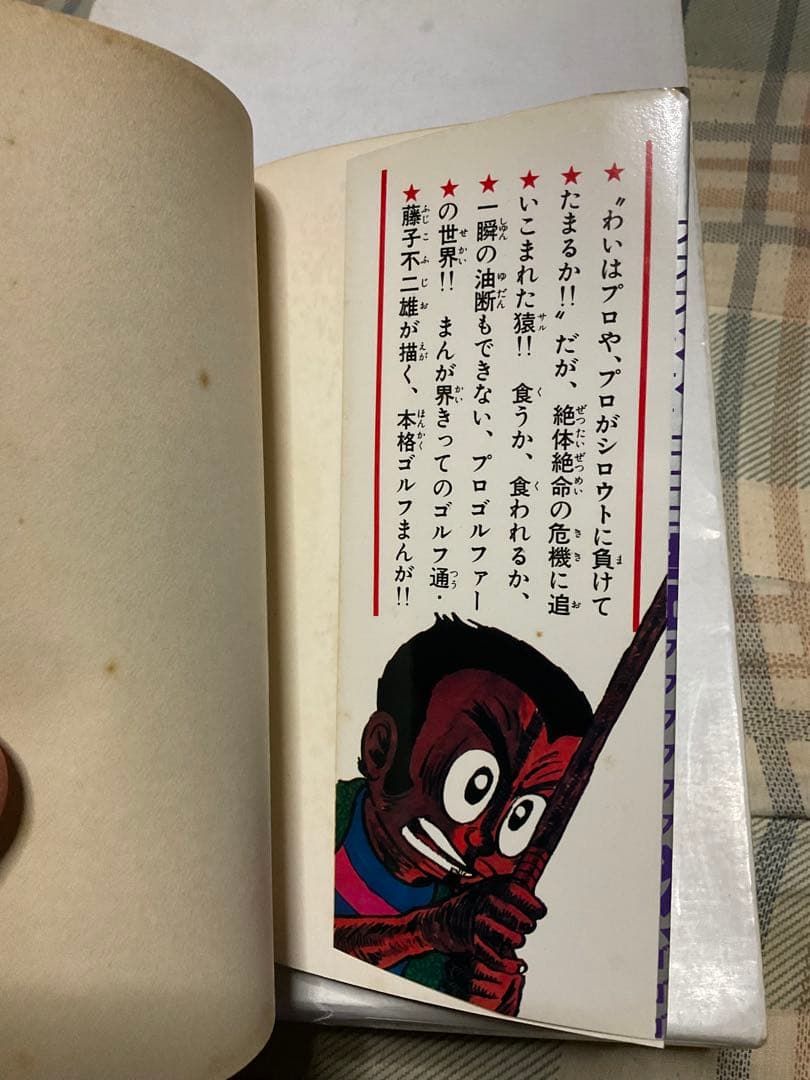 ★〝わいはプロや、プロがシロウトに負けて
★たまるか!!〟だが、絶体絶命の危機に追
★いこまれた猿!! 食うか、食われるか、
★一瞬の油断もできない、プロゴルファー
★の世界!! まんが界きってのゴルフ通・
★藤子不二雄が描く、本格ゴルフまんが!!